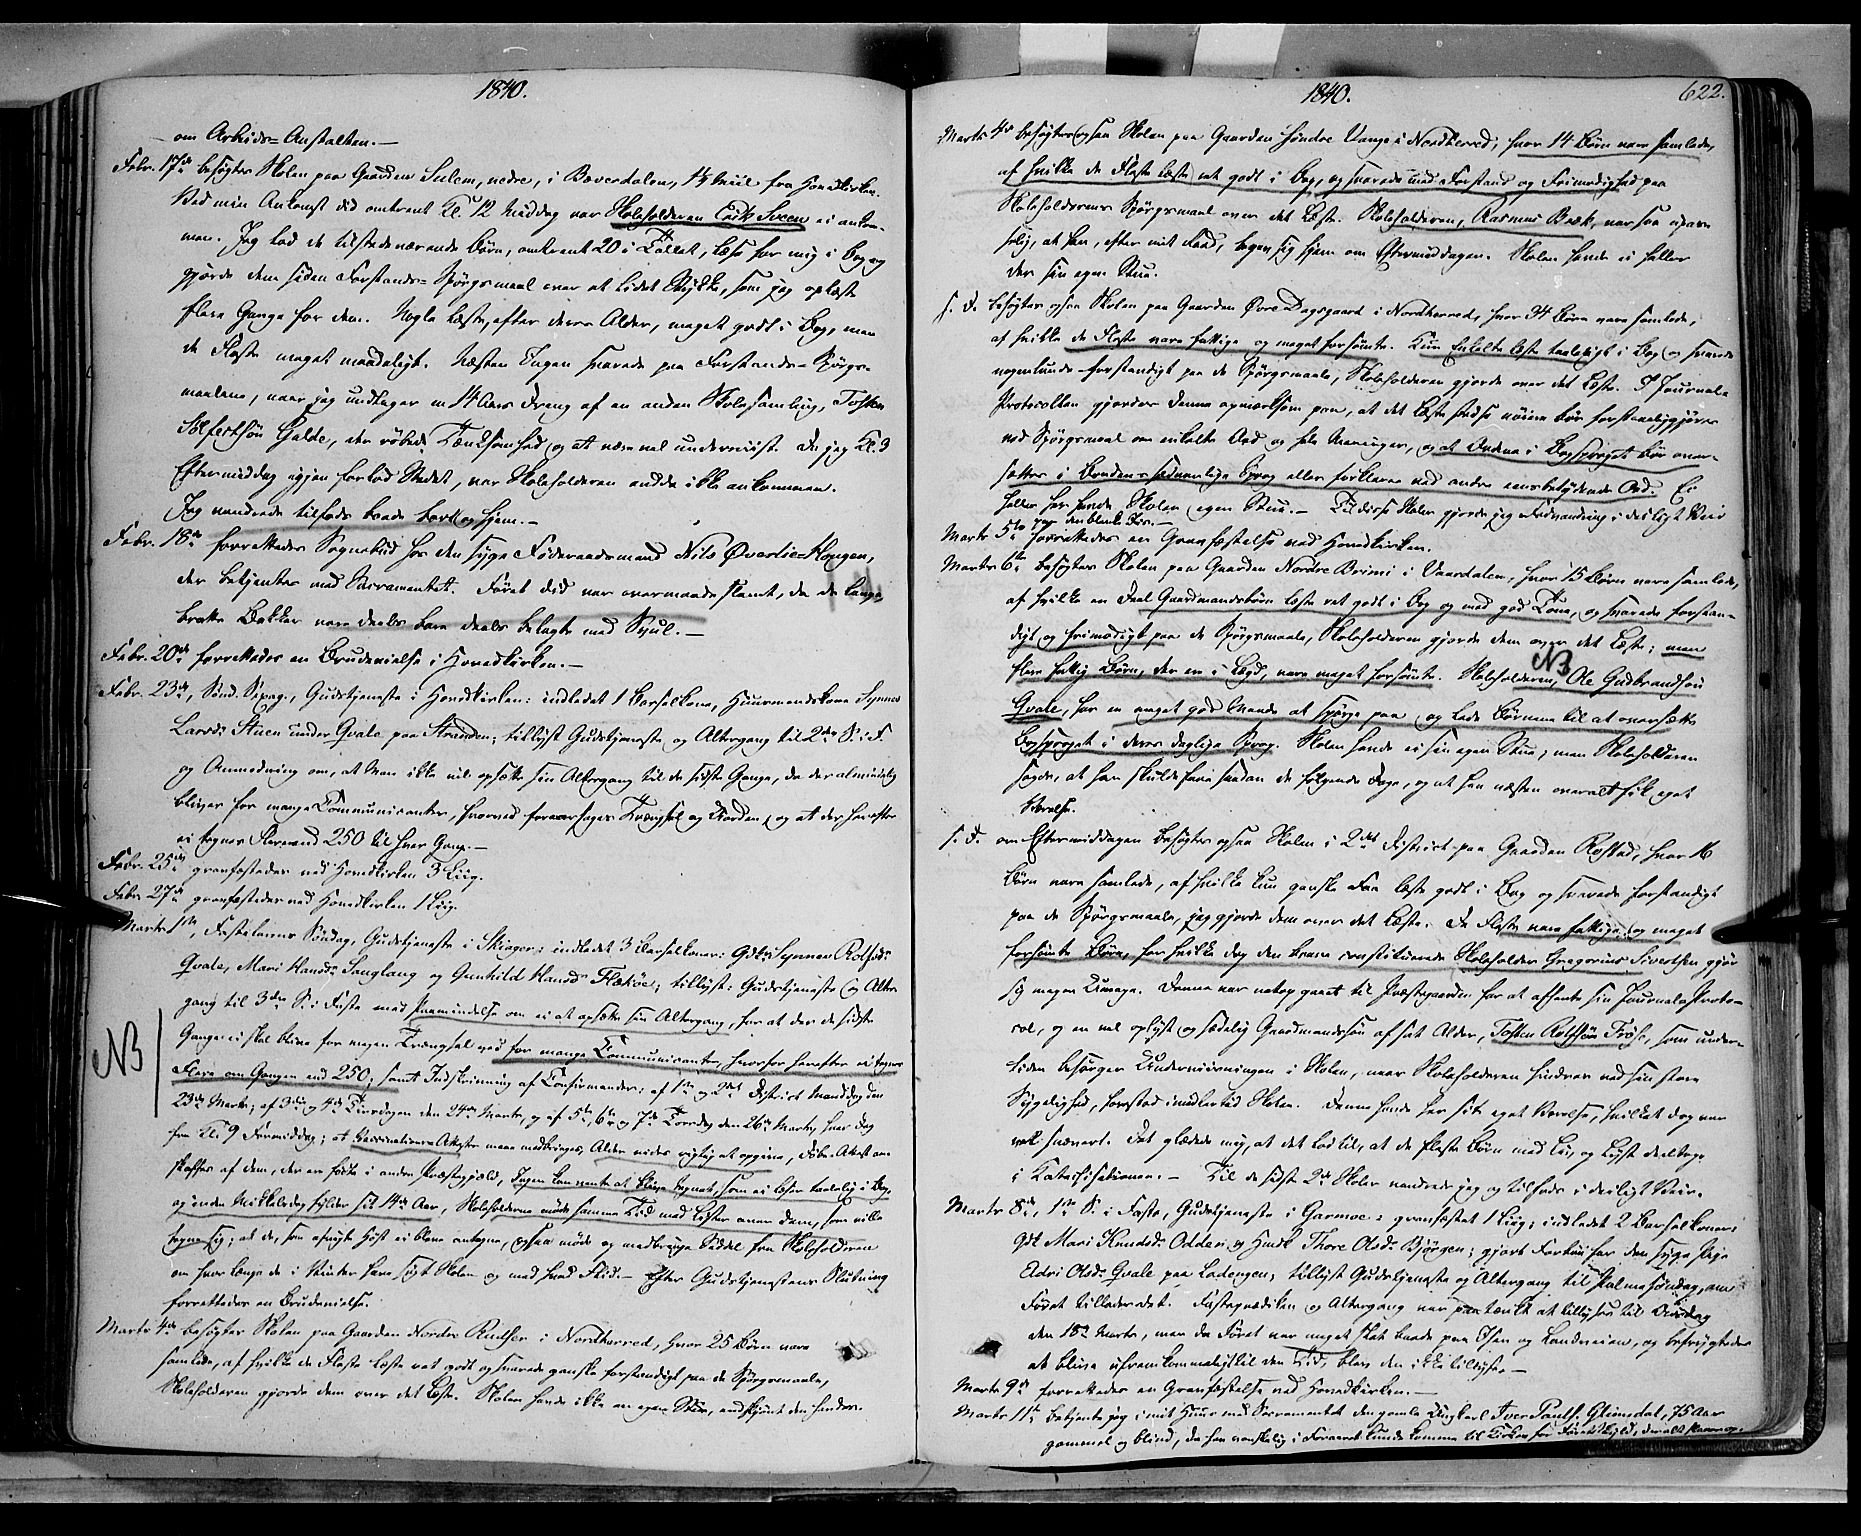 1840.
om Arbeids=Anstalten.—
Febr. 17de besøgtes Skolen paa Gaarden Sulem, nedre, i Bæverdalen, 1½ Miil fra Hovedkirken.
Ved min Ankomst did omtrent Kl. 12 Middag var Skoleholderen Erik Sveen ei ankom-
men. Jeg lod de tilstedeværende Børn, omtrent 20 i Tallet, læse for mig i Bog og
gjorde dem siden Forstands=Spørgsmaal over et lidet Stykke, som jeg oplæste
flere Gange for dem. Nogle læste, efter deres Alder, meget godt i Bog, men
de Fleste meget maadeligt. Næsten Ingen svarede paa Forstands=Spørgs-
maalene, naar jeg undtager en 14 Aars Dreng af en anden Skolesamling, Tosten
Galde, der røbede Tænksomhed og at være vel underviist. Da jeg Kl. 3
Eftermiddag igjen forlod Stedet, var Skoleholderen endda ikke ankommen.
Jeg vandrede tilfods baade bort og hjem.—
Febr. 18de forrettedes Sognebud hos den syge Føderaadsmand Nils Øverlie=Haugen,
der betjentes med Sacramentet. Føret did var overmaade slemt, da de lange,
bratte Bakker vare deels bare deels belagte med Svul.—
Febr. 20de forrettedes en Brudevielse i Hovedkirken.—
Febr. 23de, Sønd. Sexag., Gudstjeneste i Hovedkirken: indledet 1 Barselkone, Huusmandskone Synnev
Larsd. Stuen under Qvale paa Stranden; tillyst Gudstjeneste og Altergang til 2den S. i F.
og Anmodning om, at Man ikke vil opsætte sin Altergang til de sidste Gange, da der almindelig
bliver for mange Communicanter, hvorved foraarsages Trængsel og Uorden, og at der herefter
ei tegnes Flere end 250 til hver Gang.—
Febr. 25de gravfæstedes ved Hovedkirken 3 Liig.
Febr. 27de gravfæstedes ved Hovedkirken 1 Liig.
Marts 1ste, Fastelavns Søndag, Gudstjeneste i Skiager: indledet 3 Barselkoner: Gdk. Synnev Rolfsd.
Qvale, Mari Hansd. Sanglang og Gunhild Hansd. Flækøe; tillyst: Gudstjeneste og Alter-
gang til 3die S. i Faste med Paamindelse om ei at opsætte sin Altergang, for at der de sidste
Gange ei skal blive for megen Trængsel ved for mange Communicanter, hvorfor herefter ei tegnes
NB
Flere om Gangen end 250; samt Indskrivning af Confirmander: af 1ste og 2det District Manddag den
23de Marts; af 3die og 4de Tirsdagen den 24de Marts, og af 5te, 6te og 7de Torsdag den 26de Marts, hver Dag
fra Kl. 9 Formiddag; at Vaccinations Attester maae medbringes, Alder vides rigtig at opgive, Døbe-Attest an-
skaffes af dem, der ere fødte i andre Præstegjæld, Ingen kan vente at blive tegnet, som ei læser taalelig i Bog
og inden Mikkelsdag fylder sit 14de Aar, Skoleholderne møde samme Tid med Lister over dem, som ville
tegne sig; at de, som afvigte Høst ei bleve antagne, ogsaa møde og medbringe Seddel fra Skoleholderen
om hvor længe de i Vinter have søgt Skolen og med hvad Flid.— Efter Gudstjenestens Slutning
forrettedes en Brudevielse.
Marts 4de besøgtes Skolen paa Gaarden Nordre Rudsær i Nordherred, hvor 25 Børn vare
samlede, af hvilke de Fleste læste ret godt og svarede ganske forstandigt paa de Spørgsmaale,
Skoleholderen gjorde dem over det Læste. Skolen havde ikke en egen Stue, endskjønt den havdes.
1840.
622.
Marts 4de besøgtes ogsaa Skolen paa Gaarden Søndre Vange i Nordherred, hvor 14 Børn vare samlede,
af hvilke de Fleste læste ret godt i Bog, og svarede med Forstand og Frimodighed paa
Skoleholderens Spørgsmaal over det Læste. Skoleholderen, Rasmus Bræk, var saa upas-
selig, at han, efter mit Raad, begav sig hjem om Eftermiddagen. Skolen havde ei heller
der sin egen Stue.
s. D. besøgtes ogsaa Skolen paa Gaarden Øvre Dagsgaard i Nordherred, hvor 34 Børn vare samlede,
af hvilke de Fleste vare fattige og meget forsømte. Kun Enkelte læste taaleligt i Bog og svarede
nogenlunde forstandigt paa de Spørgsmaale, Skoleholderen gjorde over det Læste. I Journal-
Protocollen gjordes denne opmærksom paa, at det Læste sædvanl. nøiere bør forstandiggjøres
ved Spørgsmaal om enkelte Ord og hele Meninger, og at Ordene i Bogsproget bør over-
sættes i Bondens sædvanlige Sprog eller forklares ved andre eensbetydende Ord. Ei
heller her havde Skolen egen Stue.— Til disse Skoler gjorde jeg Fodvandring i deiligt Veir
paa den blanke Iis.—
Marts 5te forrettedes en Gravfæstelse ved Hovedkirken.
Marts 6te besøgtes Skolen paa Gaarden Nordre Brimi i Vaardalen, hvor 15 Børn vare samlede,
af hvilke en Deel Gaardmandsbørn læste ret godt i Bog og med god Tone, og svarede forstan-
digt og frimodigt paa de Spørgsmaale, Skoleholderen gjorde dem over det Læste; men
flere fattige Børn, der ere i Lægd, vare meget forsømte. Skoleholderen, Ole Gudbrandsøn
NB
Qvale, har en meget god Maade at spørge paa og lede Børnene til at oversætte
Bogsproget i deres daglige Sprog. Skolen havde ei sin egen Stue; men Skoleholderen
sagde, at han skulde faae saadan de følgende Dage, og at han næsten overalt fik eget
Værelse.
s. D. om Eftermiddagen besøgtes ogsaa Skolen i 2det District paa Gaarden Rostad, hvor 16
Børn vare samlede, af hvilke kun ganske Faa læste godt i Bog og svarede forstandigt
paa de Spørgsmaale, jeg gjorde dem over det Læste. De Fleste vare fattige og meget
forsømte Børn, for hvilke dog den brave constituerede Skoleholder Gregorius Sivertsen gjør
sig megen Umage. Denne var netop gaaet til Præstegaarden for at afhente sin Journal-Proto-
col, og en vel oplyst og sædelig Gaardmandssøn af sat Alder, Tosten Rolfsøn Frøse, som under-
tiden besørger Underviisningen i Skolen, naar Skoleholderen hindres ved sin store
Sygelighed, forestod imidlertid Skolen. Denne havde her sit eget Værelse, hvilket dog var
vel snævert. Det glædede mig, at det lod til, at de fleste Børn med Liv og Lyst deeltoge
i Katechisationen.— Til de sidste 2de Skoler vandrede jeg og tilfods i deiligt Veir.
Marts 8de, 1ste S. i Faste, Gudstjeneste i Garmoe: gravfæstet 1 Liig; indledet 2 Barselkoner:
Gdk. Mari Knudsd. Odden og Hmdk. Thore Olsd. Bjørgen; gjort Forbøn for den syge Pige
Eldri Olsd. Qvale paa Ladengen; tillyst Gudstjeneste og Altergang til Palmesøndag, om
Føret tillader det. Fasteprædiken og Altergang var paatænkt at tillyses til Onsdag
den 18de Marts, men da Føret var meget slet baade paa Isen og Landveien, og befrygtedes
at blive ufremkommeligt til den Tid, blev den ikke tillyst.—
Marts 9de forrettedes en Gravfæstelse ved Hovedkirken.—
Marts 11te betjente jeg i mit Huus med Sacramentet den gamle Ungkarl Iver Glimsdal, 75 Aar
gammel og blind, da han vanskelig i Foraaret kunde komme til Kirken for Førets Skyld,